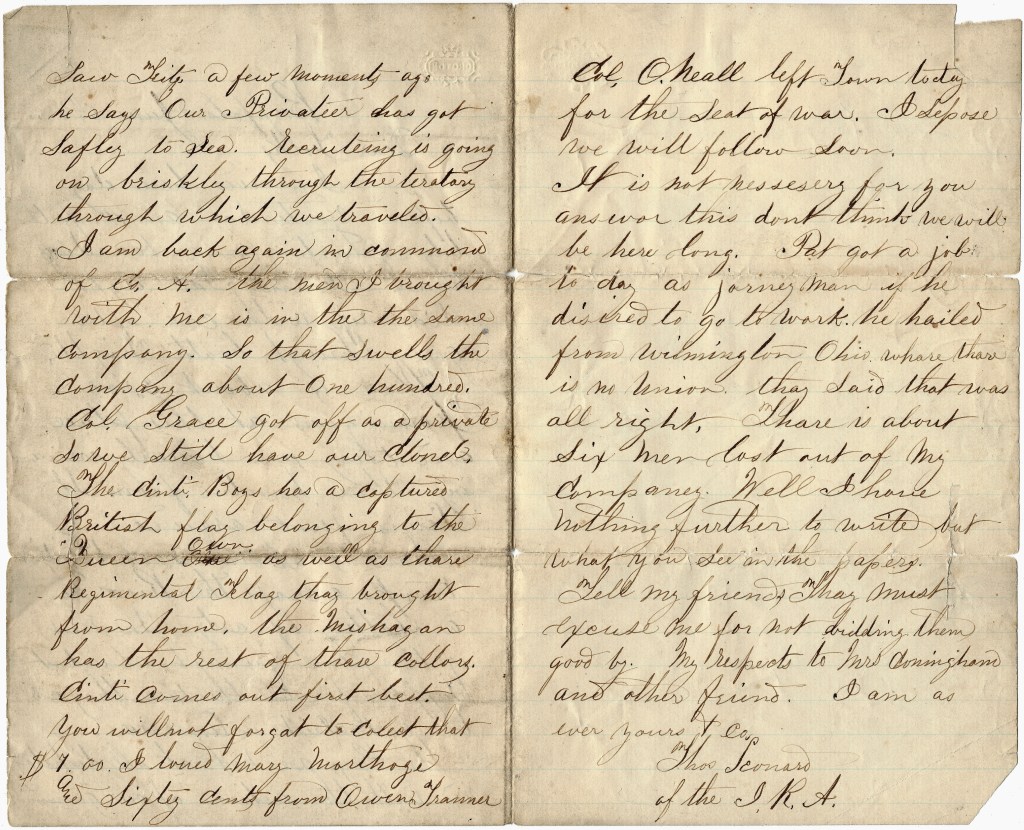 Saw Fitz a few moments ago
he says Our Privateer has got
Safley to Sea. recruteing is going
on briskley through the teratory
through which we traveled.
I am back again in command
of Co. A. the men I brought
with me is in the the same
company. So that swells the
company about One hundred.
Col. Grace got off as a private
So we still have our Clonel.
The Cinti. Boys has a captured
British flag belonging to the
Queen Own. as well as thare
Regimental Flag thay brought
from home. the Mishagan
has the rest of thare collors.
Cinti comes out first best.
You will not forgat to colect that
$7.00. I loned Mary
and Sixtey cents from Owen Tranner
Col. O.Neall left Town today
for the Seat of war. I Sepose
we will follow Soon.
It is not nessesery for you
answor this dont think we will
be here long. Pat got a job
to day as jorneyman if he
disired to go to work. he hailed
from Wilmington Ohio. whare thare
is no Union. thay Said that was
all right. Thare is about
Six men lost out of My
Companey. Well I have
nothing further to write but
what you See in the papers.
Tell my friends Thay must
excuse me for not bidding them
good by. My respects to Mrs Coningham
and other friend. I am as
ever yours & Co.
Thos Leonard
of the I. R. A.